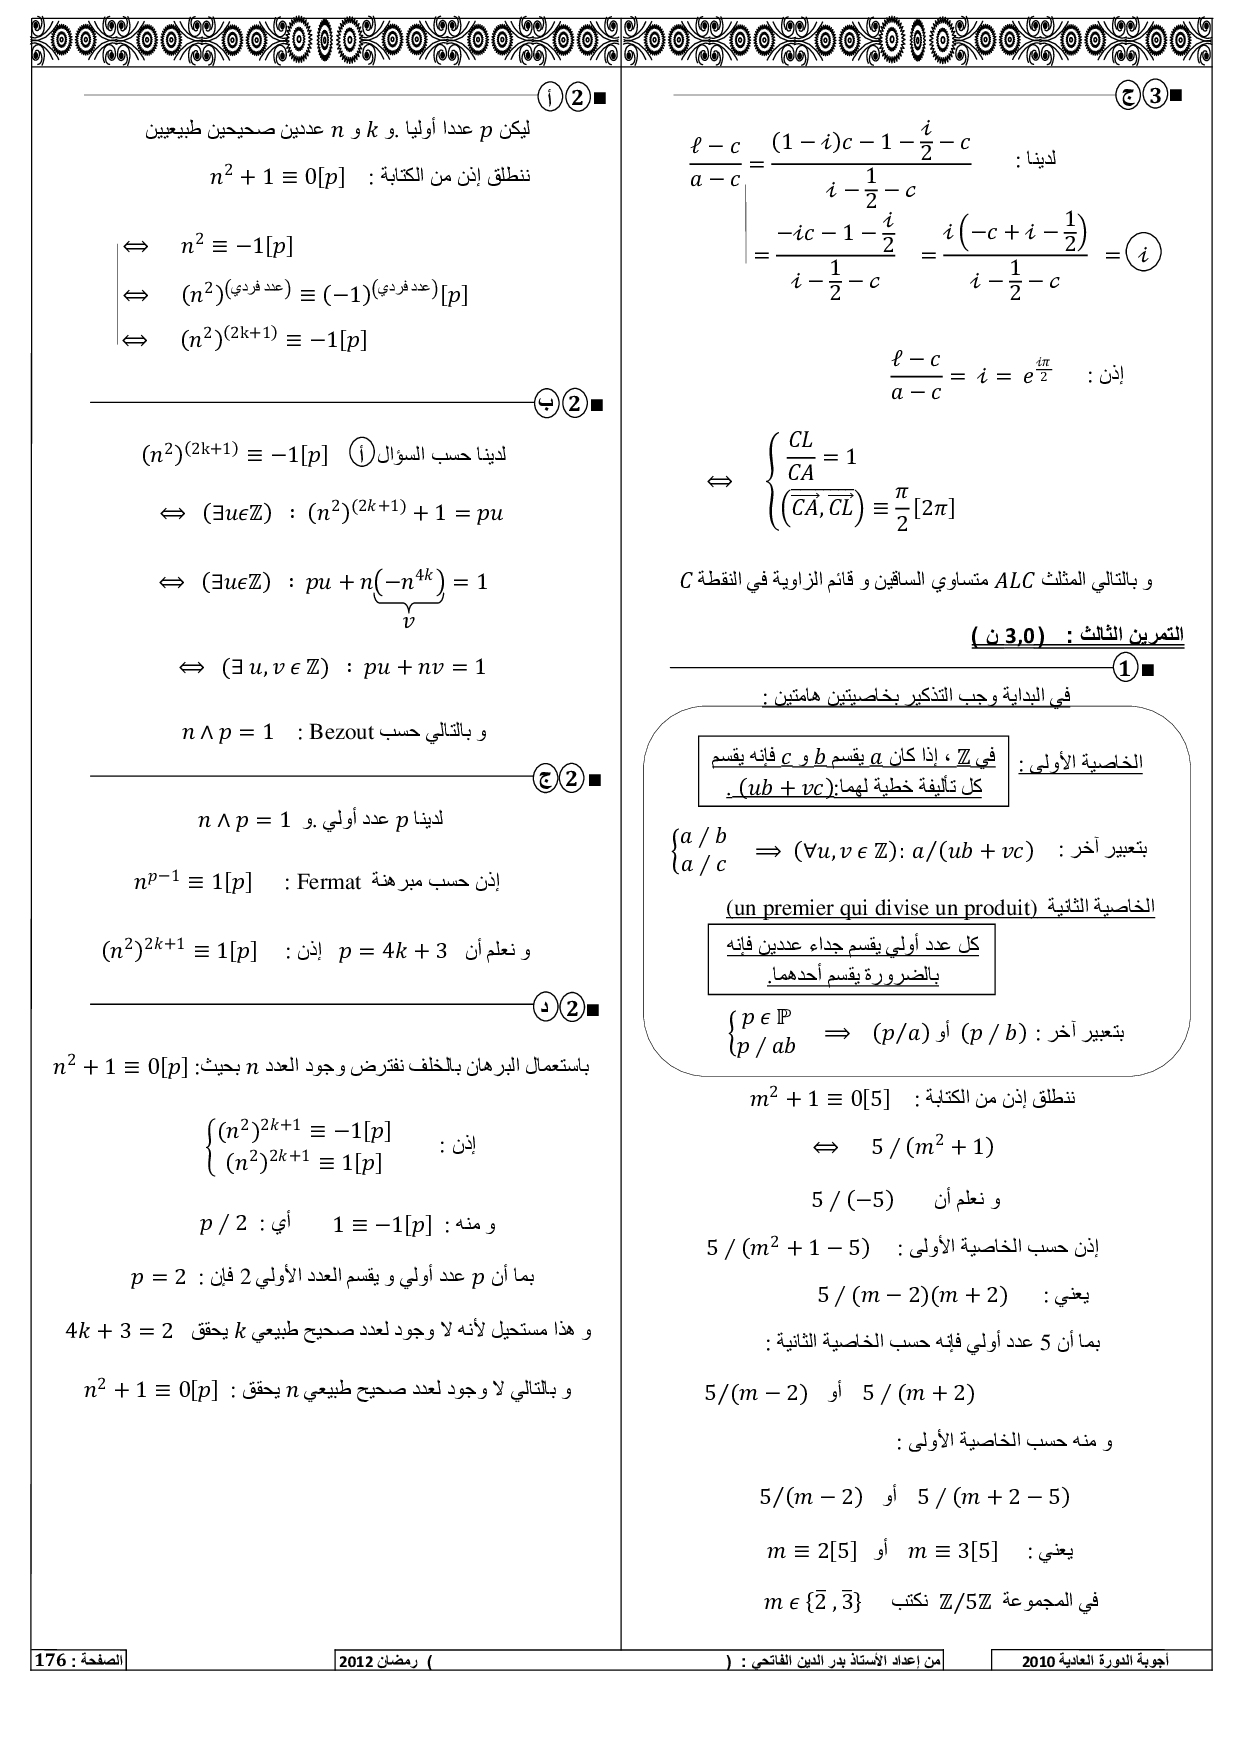 ■ 3 ج
لدينا : (ℓ − c)/(a − c) = ((1 − i)c − 1 − i/2 − c)/(i − 1/2 − c)
= (−ic − 1 − i/2)/(i − 1/2 − c) = (i(−c + i − 1/2))/(i − 1/2 − c) = i
إذن : (ℓ − c)/(a − c) = i = e^(iπ/2)
⇔ { CL/CA = 1
(CA, CL) ≡ π/2 [2π]
و بالتالي المثلث ALC متساوي الساقين و قائم الزاوية في النقطة C
التمرين الثالث : ( 3,0 ن )
■ 1
في البداية وجب التذكير بخاصيتين هامتين :
الخاصية الأولى : في ℤ ، إذا كان a يقسم b و c فإنه يقسم
كل تأليفة خطية لهما:(ub + vc) .
بتعبير آخر : { a / b a / c ⟹ (∀u, v ϵ ℤ): a/(ub + vc)
الخاصية الثانية (un premier qui divise un produit)
كل عدد أولي يقسم جداء عددين فإنه
بالضرورة يقسم أحدهما.
بتعبير آخر : { p ϵ ℙ p / ab ⟹ (p/a) أو (p / b)
ننطلق إذن من الكتابة : m² + 1 ≡ 0[5]
⇔ 5 / (m² + 1)
و نعلم أن 5 / (−5)
إذن حسب الخاصية الأولى : 5 / (m² + 1 − 5)
يعني : 5 / (m − 2)(m + 2)
بما أن 5 عدد أولي فإنه حسب الخاصية الثانية :
5/(m − 2) أو 5 / (m + 2)
و منه حسب الخاصية الأولى :
5/(m − 2) أو 5 / (m + 2 − 5)
يعني : m ≡ 2[5] أو m ≡ 3[5]
في المجموعة ℤ/5ℤ نكتب m ϵ {2̅ , 3̅}
■ 2 أ
ليكن p عددا أوليا .و k و n عددين صحيحين طبيعيين
ننطلق إذن من الكتابة : n² + 1 ≡ 0[p]
⇔ n² ≡ −1[p]
⇔ (n²)^(عدد فردي) ≡ (−1)^(عدد فردي)[p]
⇔ (n²)^(2k+1) ≡ −1[p]
■ 2 ب
لدينا حسب السؤال أ (n²)^(2k+1) ≡ −1[p]
⇔ (∃uϵℤ) : (n²)^(2k+1) + 1 = pu
⇔ (∃uϵℤ) : pu + n(−n^4k) = 1
v
⇔ (∃ u, v ϵ ℤ) : pu + nv = 1
و بالتالي حسب Bezout : n ∧ p = 1
■ 2 ج
لدينا p عدد أولي .و n ∧ p = 1
إذن حسب مبرهنة Fermat : n^(p−1) ≡ 1[p]
و نعلم أن p = 4k + 3 إذن : (n²)^(2k+1) ≡ 1[p]
■ 2 د
باستعمال البرهان بالخلف نفترض وجود العدد n بحيث: n² + 1 ≡ 0[p]
إذن : { (n²)^(2k+1) ≡ −1[p]
(n²)^(2k+1) ≡ 1[p]
و منه : 1 ≡ −1[p] أي : p / 2
بما أن p عدد أولي و يقسم العدد الأولي 2 فإن : p = 2
و هذا مستحيل لأنه لا وجود لعدد صحيح طبيعي k يحقق 4k + 3 = 2
و بالتالي لا وجود لعدد صحيح طبيعي n يحقق : n² + 1 ≡ 0[p]
أجوبة الدورة العادية 2010
من إعداد الأستاذ بدر الدين الفاتحي : ( ) رمضان 2012
الصفحة : 176